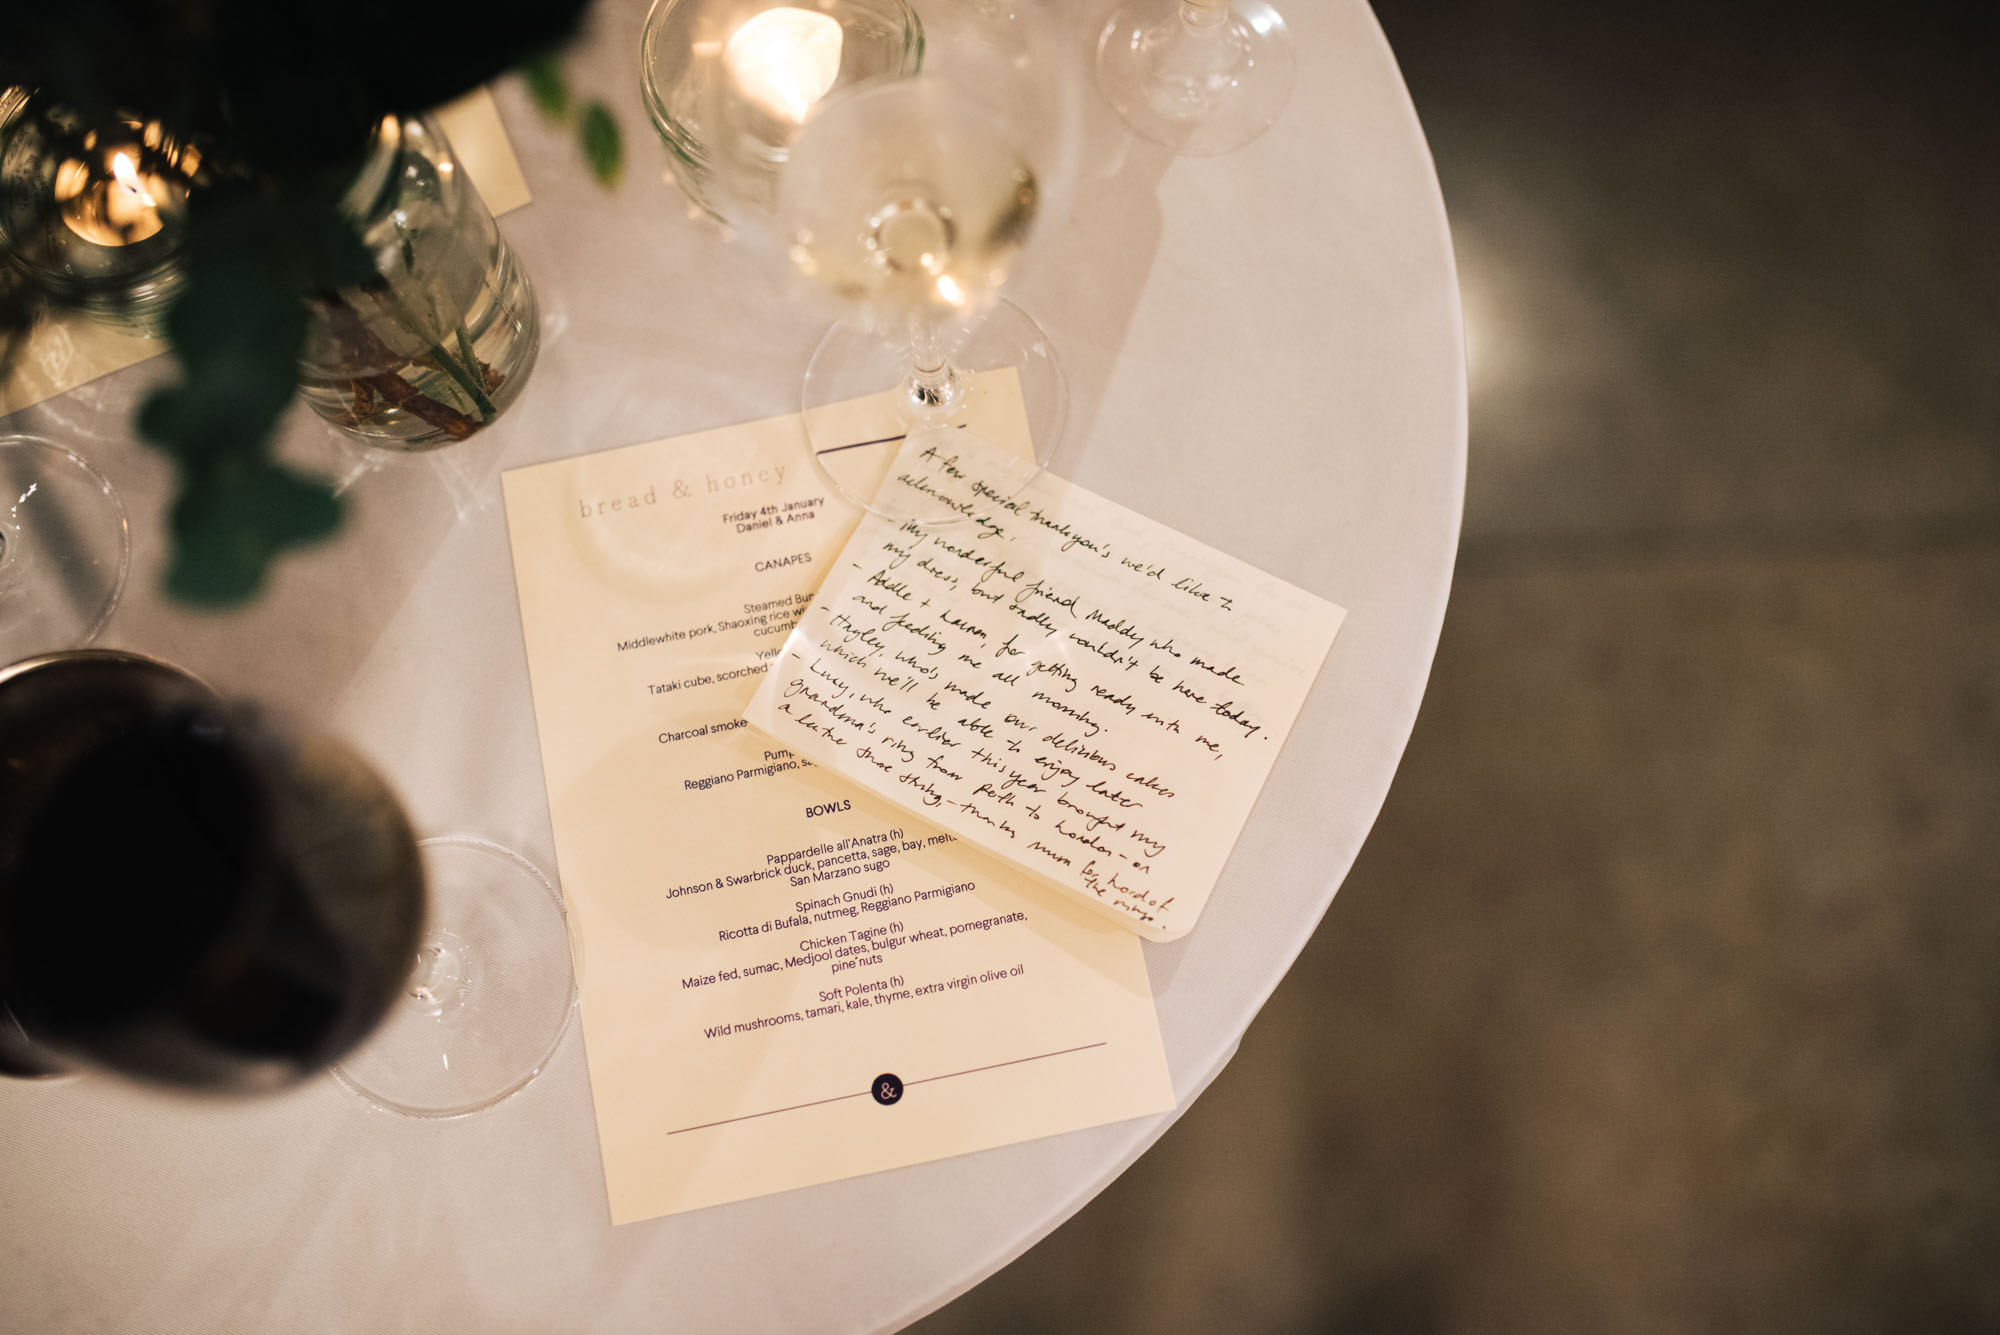 bread & honey
Friday 4th January
Daniel & Anna
CANAPES
Steamed
Middlewhite pork, Shaoxing rice
Tataki cube, scorched
Charcoal smoke
Reggiano Parmigiano,
BOWLS
Pappardelle all'Anatra (h)
Johnson & Swarbrick duck, pancetta, sage, bay,
San Marzano sugo
Spinach Gnudi (h)
Ricotta di Bufala, nutmeg, Reggiano Parmigiano
Chicken Tagine (h)
Maize fed, sumac, Medjool dates, bulgur wheat, pomegranate,
pine nuts
Soft Polenta (h)
Wild mushrooms, tamari, kale, thyme, extra virgin olive oil
&
A few special thankyou's we'd like to
acknowledge.
- My wonderful friend Maddy who made
my dress, but sadly couldn't be here today.
- Addie + for getting ready with me,
and feeding me all morning.
- Hayley, who's made our delicious cakes
which we'll be able to enjoy later
- Lucy, who earlier this year brought my
grandma's ring from Perth to London - on
a shoe string, - thanks Mum for
the rings.